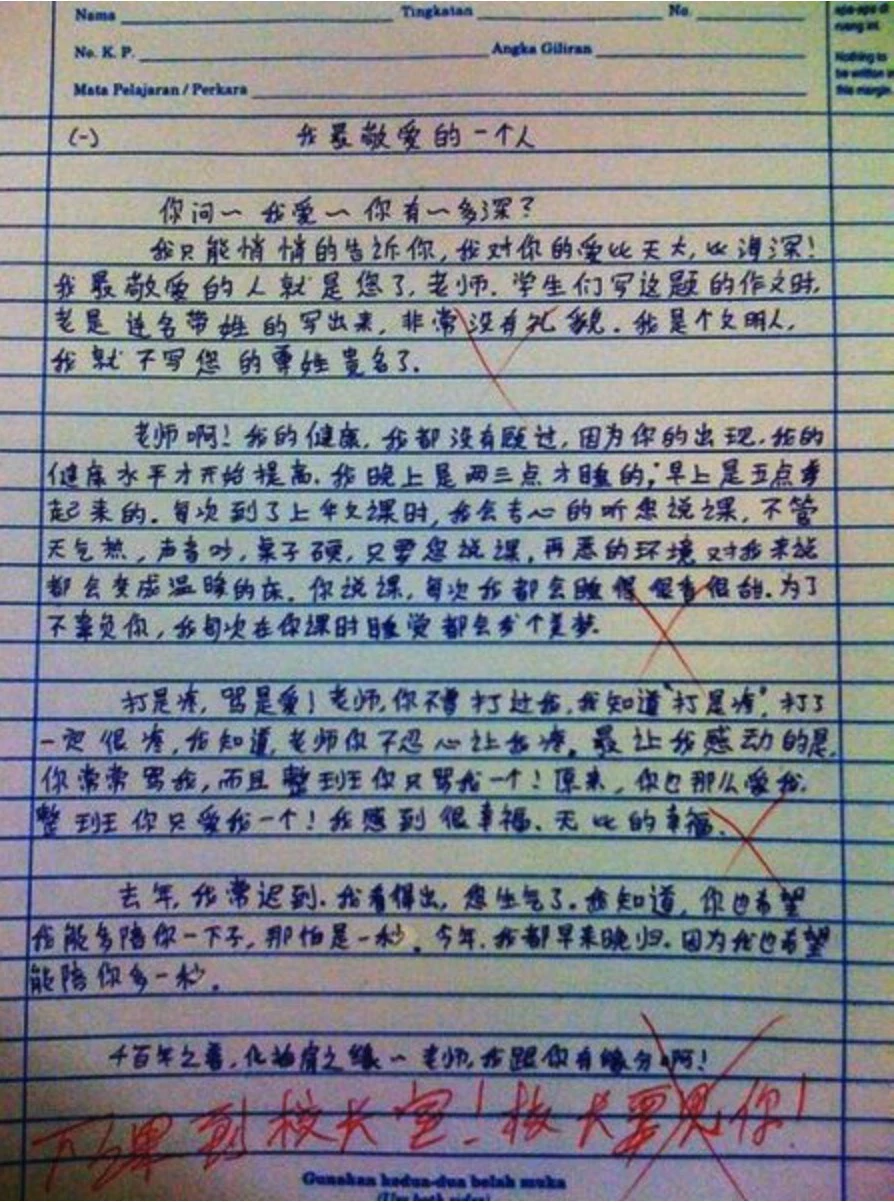 Nama Tingkatan No.
No. K. P. Angka Giliran
Mata Pelajaran / Perkara
apa-apa di
ruang ini.
Nothing to
be written in
this margin.
(一) 我最敬爱的一个人
你问~ 我爱~ 你有~多深?
我只能悄悄的告诉你,我对你的爱比天大,比海深!
我最敬爱的人就是您了,老师。学生们写这题的作文时,
老是连名带姓的写出来,非常没有礼貌。我是个文明人,
我就不写您的尊姓贵名了。
老师啊!我的健康,我都没有顾过,因为你的出现,我的
健康水平才开始提高。我晚上是两三点才睡的,早上是五点半
起来的。每次到了上华文课时,我会专心的听您说课,不管
天气热,声音吵,桌子硬,只要您说课,再恶的环境对我来说
都会变成温暖的床。你说课,每次我都会睡得很香很甜。为了
不辜负你,我每次在你课时睡觉都会发个美梦。
打是疼,骂是爱!老师,你不曾打过我,我知道“打是疼”,打了
一定很疼,我知道,老师你不忍心让我疼。最让我感动的是,
你常常骂我,而且整班你只骂我一个!原来,你也那么爱我,
整班你只爱我一个!我感到很幸福、无比的幸福。
去年,我常迟到。我看得出,您生气了。我知道,你也希望
我能多陪你一下子,那怕是一秒。今年,我都早来晚归。因为我也希望
能陪你多一秒。
千百年之着,化拍肩之缘~ 老师,我跟你有缘分啊!
下课到校长室!校长要见你!
Gunakan kedua-dua belah muka
(Use both sides)